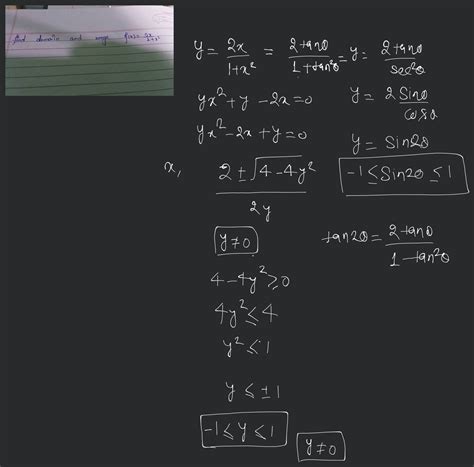 find domain and range f(x) = 2x/1+x²
y = 2x/1+x² = 2tanθ/1+tan²θ = y = 2tanθ/sec²θ
yx² + y - 2x = 0
y = 2 Sinθ
yx² - 2x + y = 0
y = Sin2θ
x, 2 ± √4 - 4y² / 2y
-1 ≤ Sin2θ ≤ 1
y ≠ 0
tan2θ = 2tanθ/1-tan²θ
4 - 4y² ≥ 0
4y² ≤ 4
y² ≤ 1
y ≤ ±1
-1 ≤ y ≤ 1
y ≠ 0